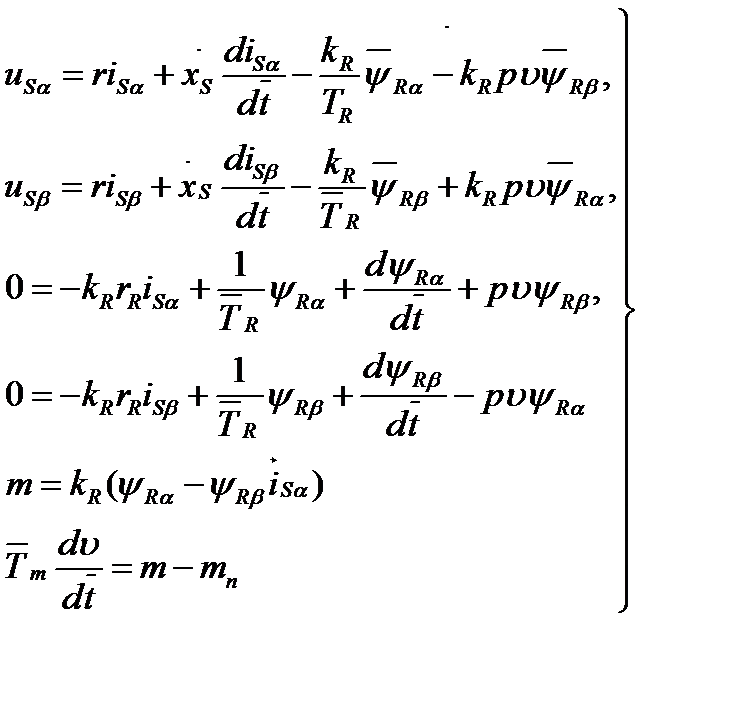 u_{Sα} = ri_{Sα} + ẋ_S di_{Sα}/dt̄ − k_R/T_R ψ̄_{Rα} − k_R pυψ̄_{Rβ},
u_{Sβ} = ri_{Sβ} + ẋ_S di_{Sβ}/dt̄ − k_R/T̄_R ψ̄_{Rβ} + k_R pυψ̄_{Rα},
0 = −k_R r_R i_{Sα} + 1/T̄_R ψ_{Rα} + dψ_{Rα}/dt̄ + pυψ_{Rβ},
0 = −k_R r_R i_{Sβ} + 1/T̄_R ψ_{Rβ} + dψ_{Rβ}/dt̄ − pυψ_{Rα}
m = k_R(ψ_{Rα} − ψ_{Rβ} i_{Sα})
T̄_m dυ/dt̄ = m − m_n